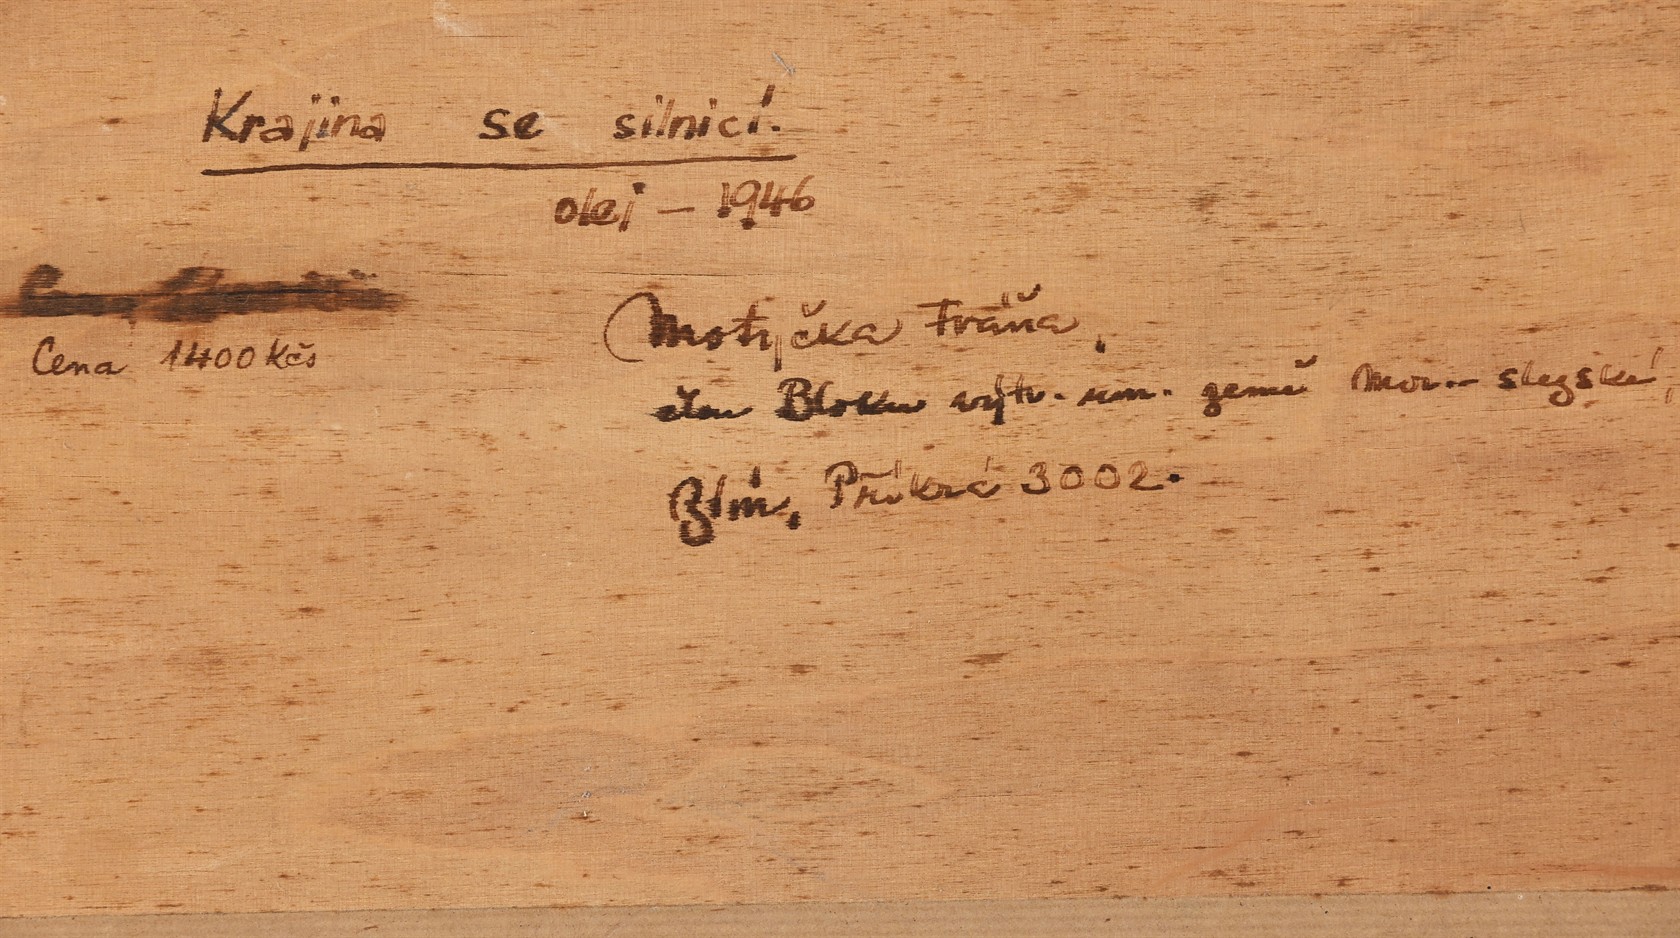 Krajina se silnicí.
olej – 1946
Cena 1400 Kčs
Motyčka Fráňa,
člen Bloku výtv. um. země Mor. - slezské,
Zlín, Příkrá 3002.